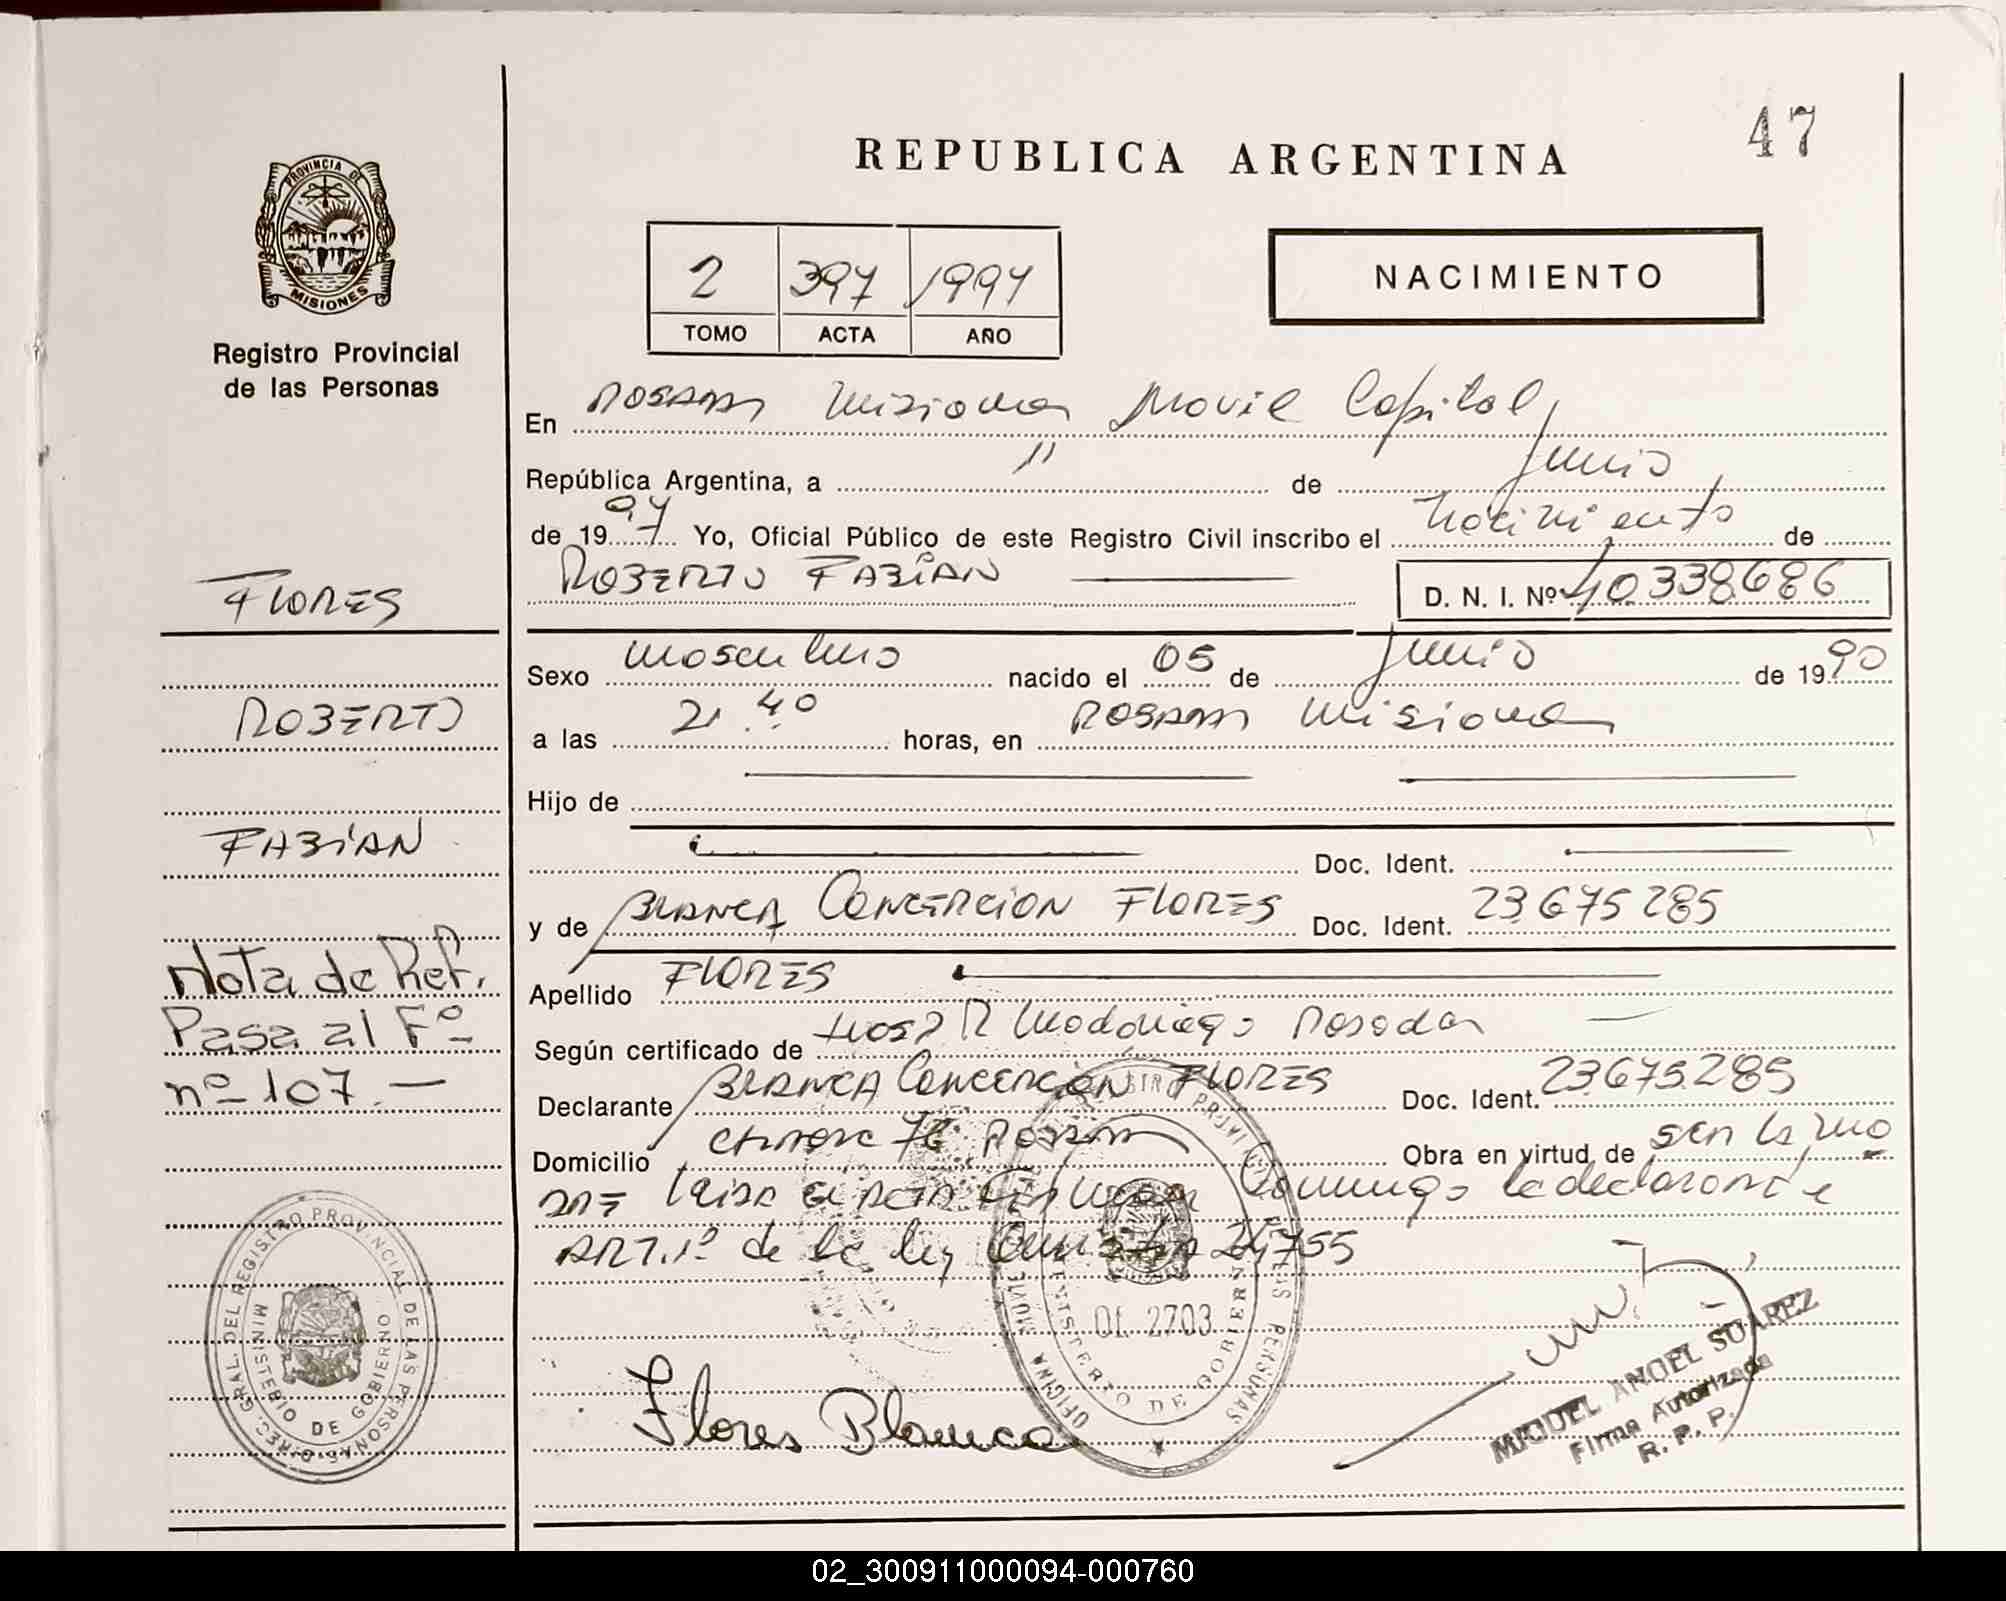 47
REPUBLICA ARGENTINA
PROVINCIA DE
MISIONES
Registro Provincial
de las Personas
2 397 1997
TOMO ACTA AÑO
NACIMIENTO
En Posadas Misiones Movil Capital,
República Argentina, a 11 de Junio
de 1997 Yo, Oficial Público de este Registro Civil inscribo el nacimiento de
ROBERTO FABIAN D. N. I. Nº 40.338.686
FLORES
Sexo masculino nacido el 05 de Junio de 1990
ROBERTO
a las 21.40 horas, en Posadas Misiones
Hijo de
FABIAN
Doc. Ident.
y de BLANCA CONCEPCION FLORES Doc. Ident. 23.675.285
Apellido FLORES
Nota de Ref.
Pasa al Fº
nº 107.
Según certificado de Hosp R Madariaga Posadas
Declarante BLANCA CONCEPCION FLORES Doc. Ident. 23.675.285
Domicilio Chacra Posadas Obra en virtud de ser la ma
dre Leida el acta la declarante
ART. 1º de la ley 24755
DIREC. GRAL. DEL REGISTRO PROVINCIAL DE LAS PERSONAS
MINISTERIO DE GOBIERNO
OFICINA MOVIL REGISTRO PROVINCIAL DE LAS PERSONAS
Of. 2703
MINISTERIO DE GOBIERNO
Flores Blanca
MIGUEL ANGEL SUAREZ
Firma Autorizada
R. P. P.
02_300911000094-000760